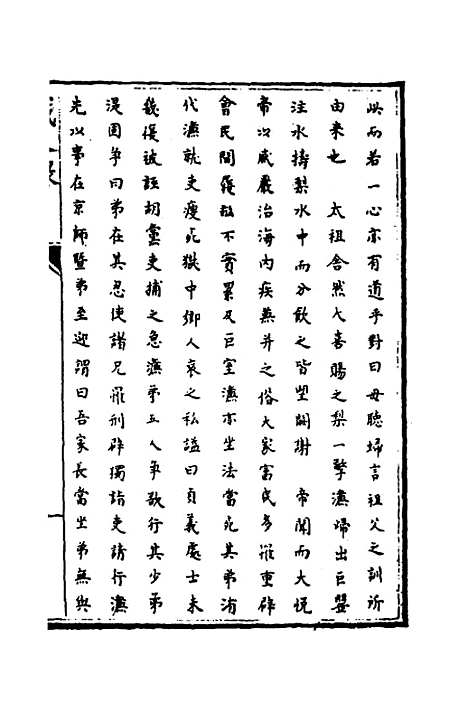 此而若一心亦有道乎對曰毋聽婦言祖父之訓所
由来也　太祖舍然大喜賜之梨一擎濂歸出巨甖
注水擣梨水中而分飲之皆望闕謝　帝聞而大悅
帝以威嚴治海内疾兼并之俗大家富民多罹重辟
會民間覆檢不實累及巨室濂亦坐法當死其弟洧
代濂就吏瘦死獄中鄉人哀之私謚曰貞義處士未
幾復被誣胡黨吏捕之急濂弟五人爭欲行其少弟
湜固爭曰弟在其忍使諸兄罹刑辟獨詣吏請行濂
先以事在京師暨弟至迎謂曰吾家長當坐弟無與